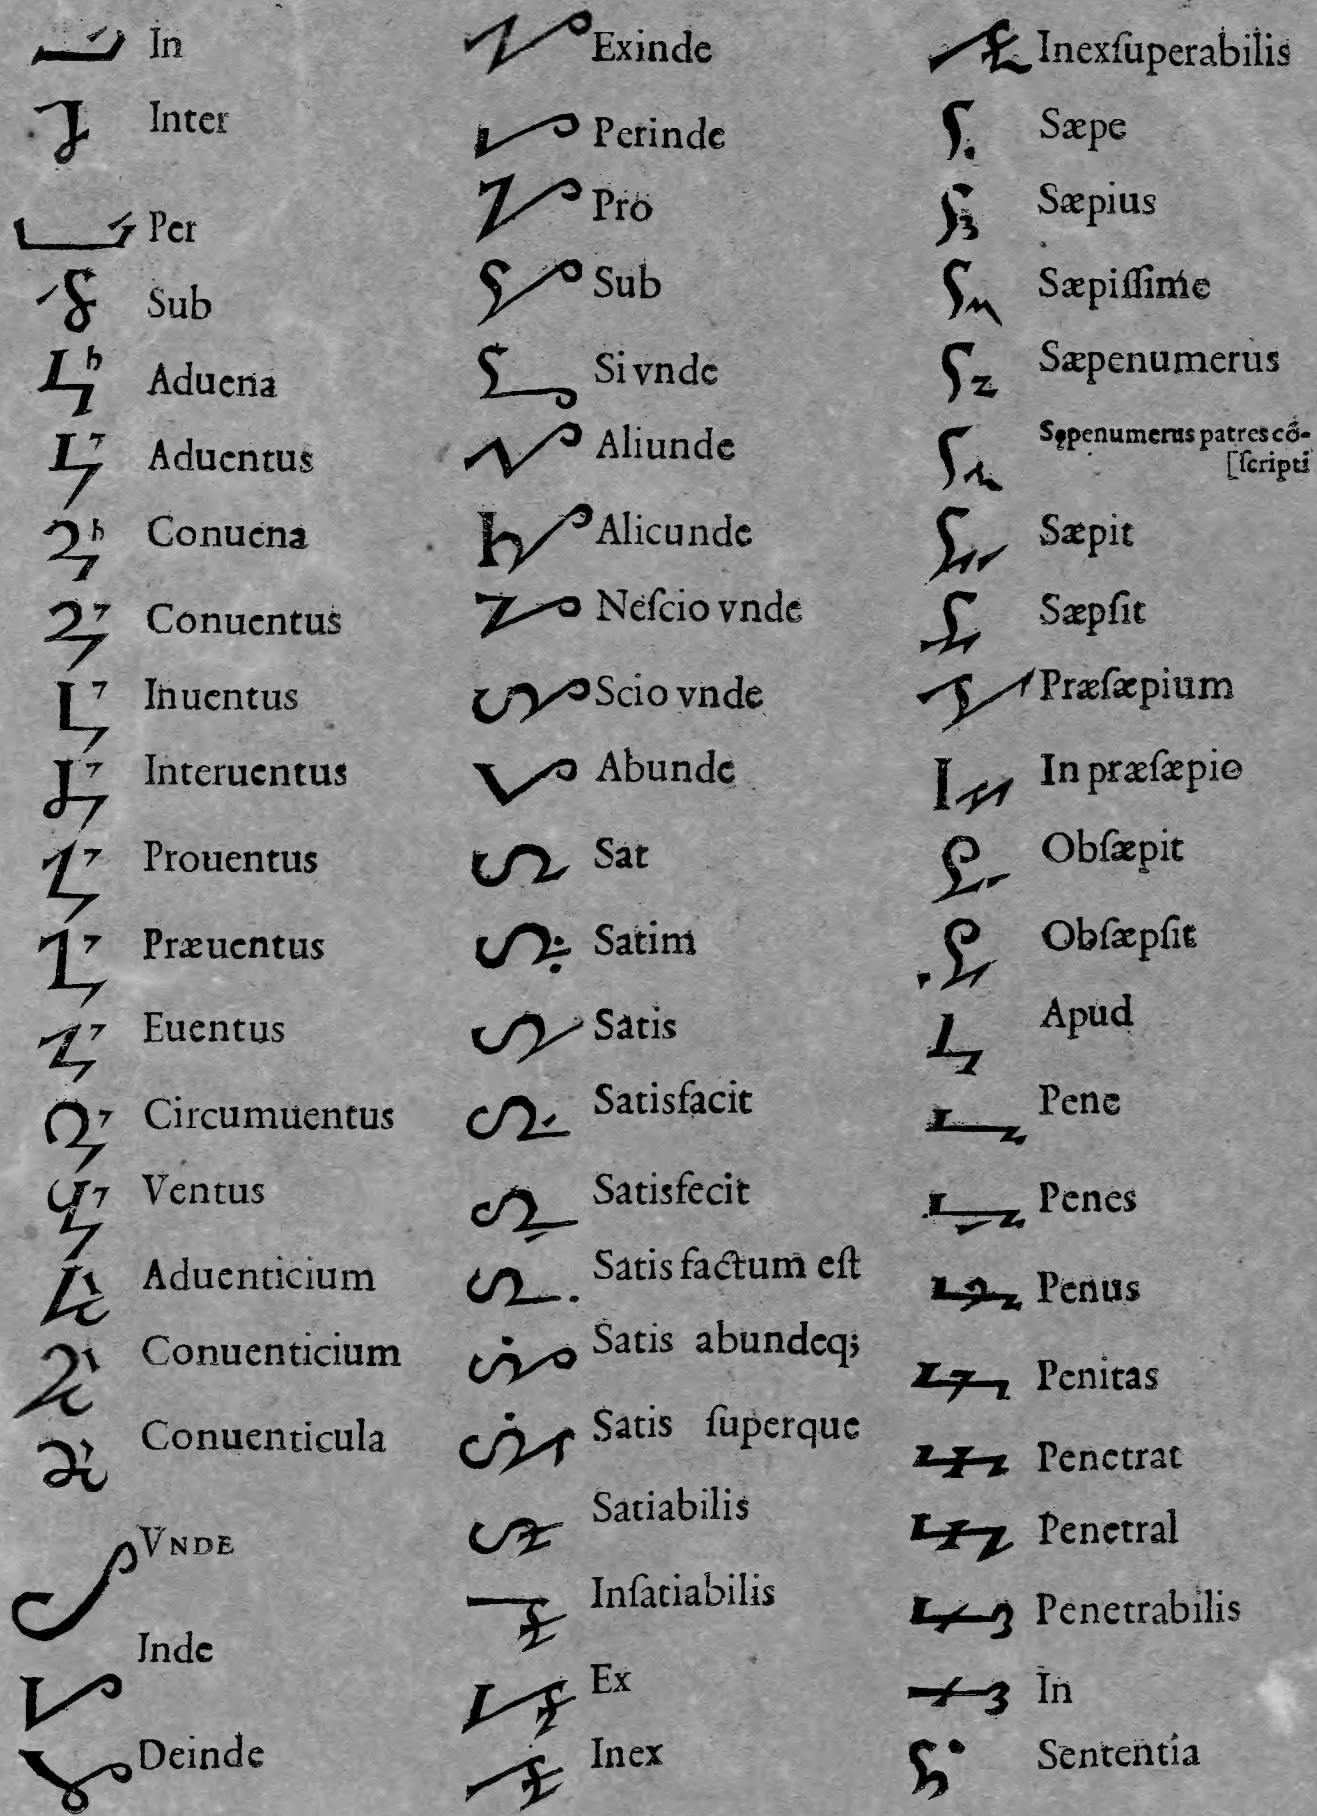 In
Inter
Per
Sub
Aduena
Aduentus
Conuena
Conuentus
Inuentus
Interuentus
Prouentus
Præuentus
Euentus
Circumuentus
Ventus
Aduenticium
Conuenticium
Conuenticula
VNDE
Inde
Deinde
Exinde
Perinde
Pro
Sub
Si vnde
Aliunde
Alicunde
Neſcio vnde
Scio vnde
Abunde
Sat
Satim
Satis
Satisfacit
Satisfecit
Satis factum eſt
Satis abundeq;
Satis ſuperque
Satiabilis
Inſatiabilis
Ex
Inex
Inexſuperabilis
Sæpe
Sæpius
Sæpiſſime
Sæpenumerus
Sępenumerus patres cō-
[ſcripti
Sæpit
Sæpſit
Præſæpium
In præſæpio
Obſæpit
Obſæpſit
Apud
Pene
Penes
Penus
Penitas
Penetrat
Penetral
Penetrabilis
In
Sententia